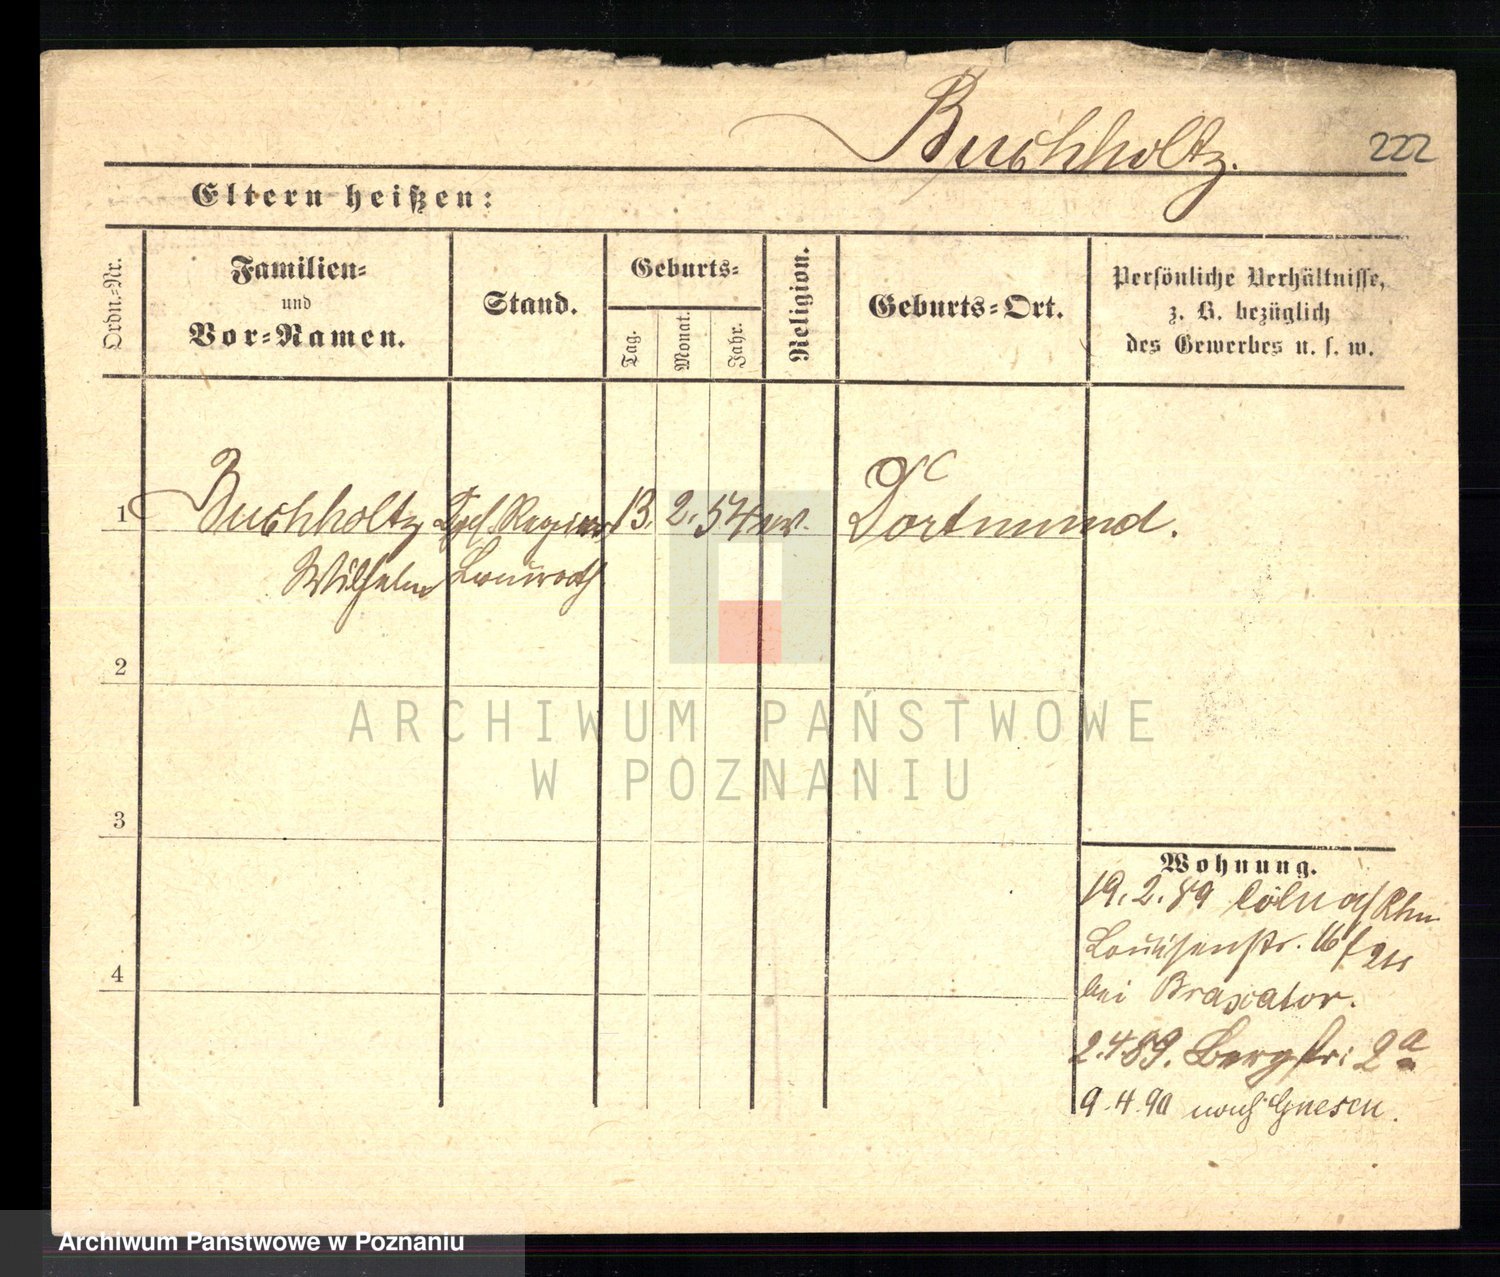 Buchholtz.
222
Eltern heißen:
Ordn.-Nr.
Familien-
und
Vor-Namen.
Stand.
Geburts-
Tag.
Monat.
Jahr.
Religion.
Geburts-Ort.
Persönliche Verhältnisse,
z. B. bezüglich
des Gewerbes u. s. w.
1 Buchholtz 13. 2. 54 ev. Dortmund.
Wilhelm
2
3
4
Wohnung.
19. 2. 89 Cöln a/ Rhn
Louisenstr. 16
bei
2.4.89. Bergstr: 2a
9.4.90 nach Gnesen.
ARCHIWUM PAŃSTWOWE
W POZNANIU
Archiwum Państwowe w Poznaniu